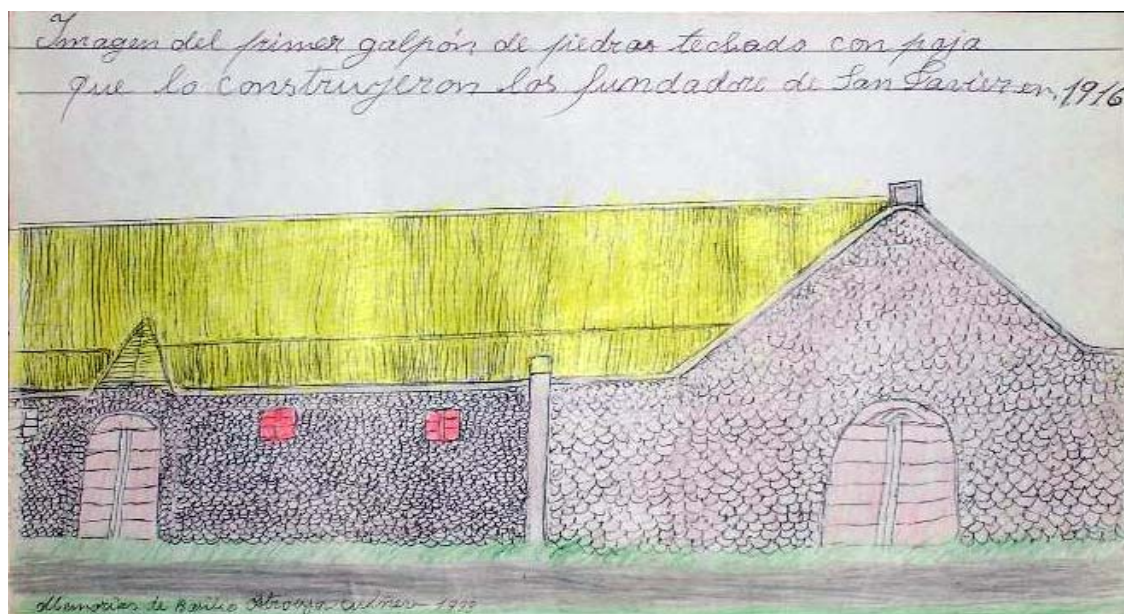 Imagen del primer galpón de piedras techado con paja
que lo construyeron los fundadore de San Javier en, 1916
Memorias de Basilio